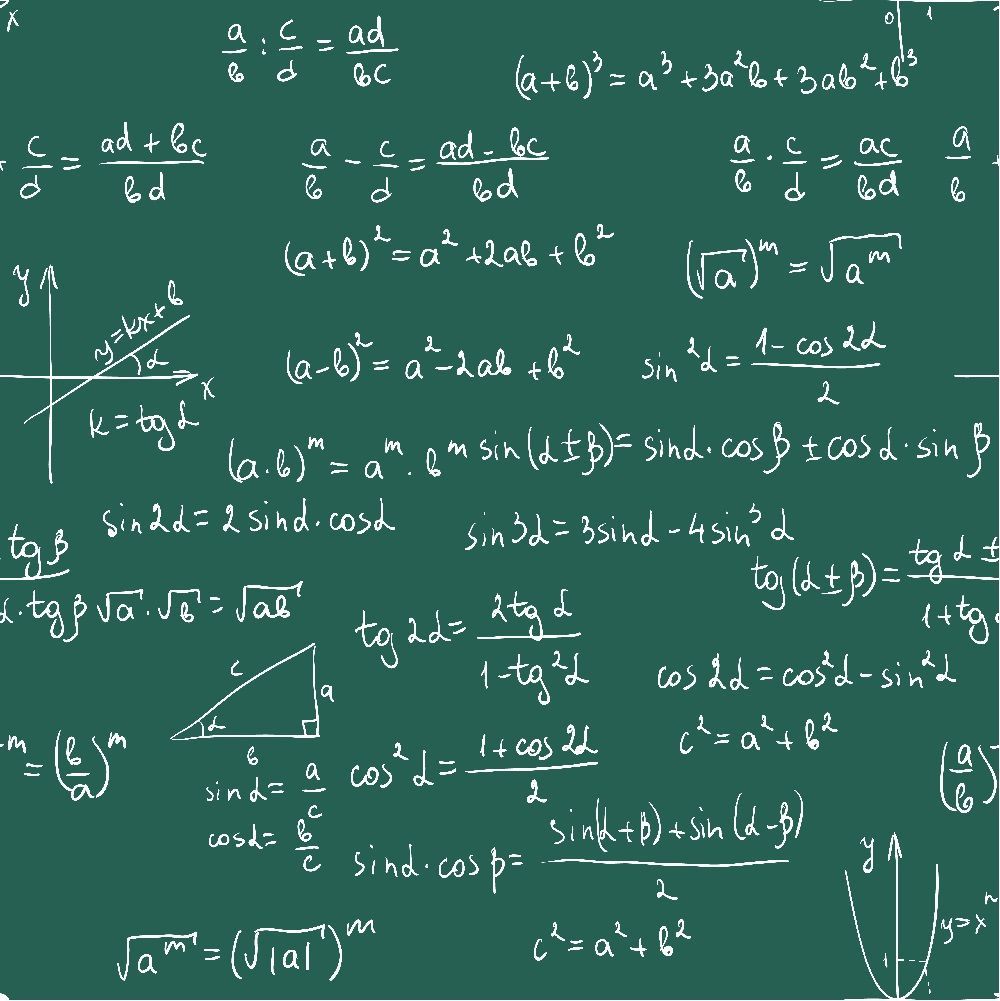 x
0 1
a/b : c/d = ad/bc
(a+b)³ = a³ + 3a²b + 3ab² + b³
c/d = (ad + bc)/bd
a/b - c/d = (ad - bc)/bd
a/b · c/d = ac/bd
a/b
(a+b)² = a² + 2ab + b²
(√a)ᵐ = √aᵐ
y
y=kx+b
α
x
k = tg α
(a-b)² = a² - 2ab + b²
sin²α = (1 - cos 2α)/2
(a·b)ᵐ = aᵐ · bᵐ
sin (α ± β) = sinα · cos β ± cos α · sin β
sin2α = 2 sinα · cosα
sin3α = 3sinα - 4sin³α
tg β
α · tg β
√a · √b = √ab
tg (α ± β) =
tg α ±
1 + tg α
tg 2α = 2tg α/(1 - tg²α)
cos 2α = cos²α - sin²α
c
a
α
b
c² = a² + b²
-m = (b/a)ᵐ
(a/b)
sin α = a/c
cos²α = (1 + cos 2α)/2
cosα = b/c
sinα · cos β = (sin(α+β) + sin (α-β))/2
y
y=xⁿ
1
√aᵐ = (√|a|)ᵐ
c² = a² + b²